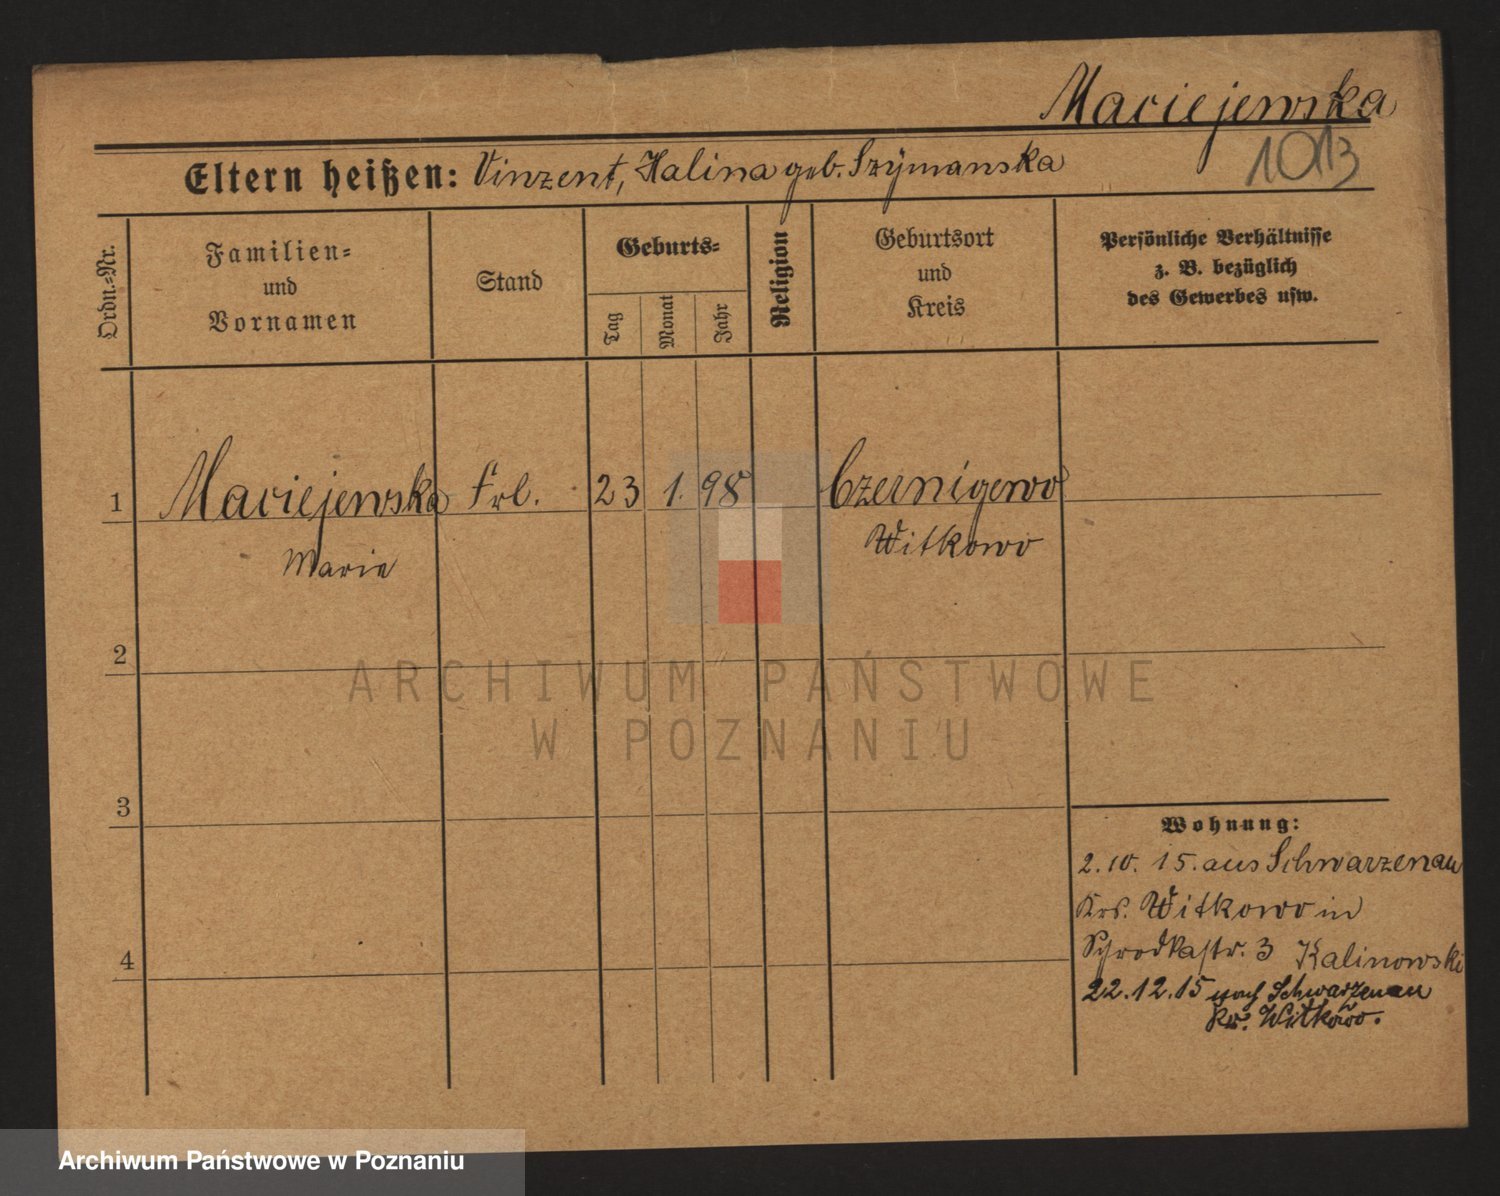 Maciejewska
1013
Eltern heißen: Vinzent, Halina geb. Szÿmanska
Ordn.-Nr.
Familien-
und
Vornamen
Stand
Geburts-
Tag
Monat
Jahr
Religion
Geburtsort
und
Kreis
Persönliche Verhältnisse
z. B. bezüglich
des Gewerbes usw.
1 Maciejewska Frl. 23 1. 98 Czernigewo
Marie Witkowo
2
3
4
Wohnung:
2. 10. 15. aus Schwarzenau
Krs. Witkowo in
Schrodkastr. 3 Kalinowski
22.12.15 nach Schwarzenau
Kr. Witkowo.
ARCHIWUM PAŃSTWOWE
W POZNANIU
Archiwum Państwowe w Poznaniu